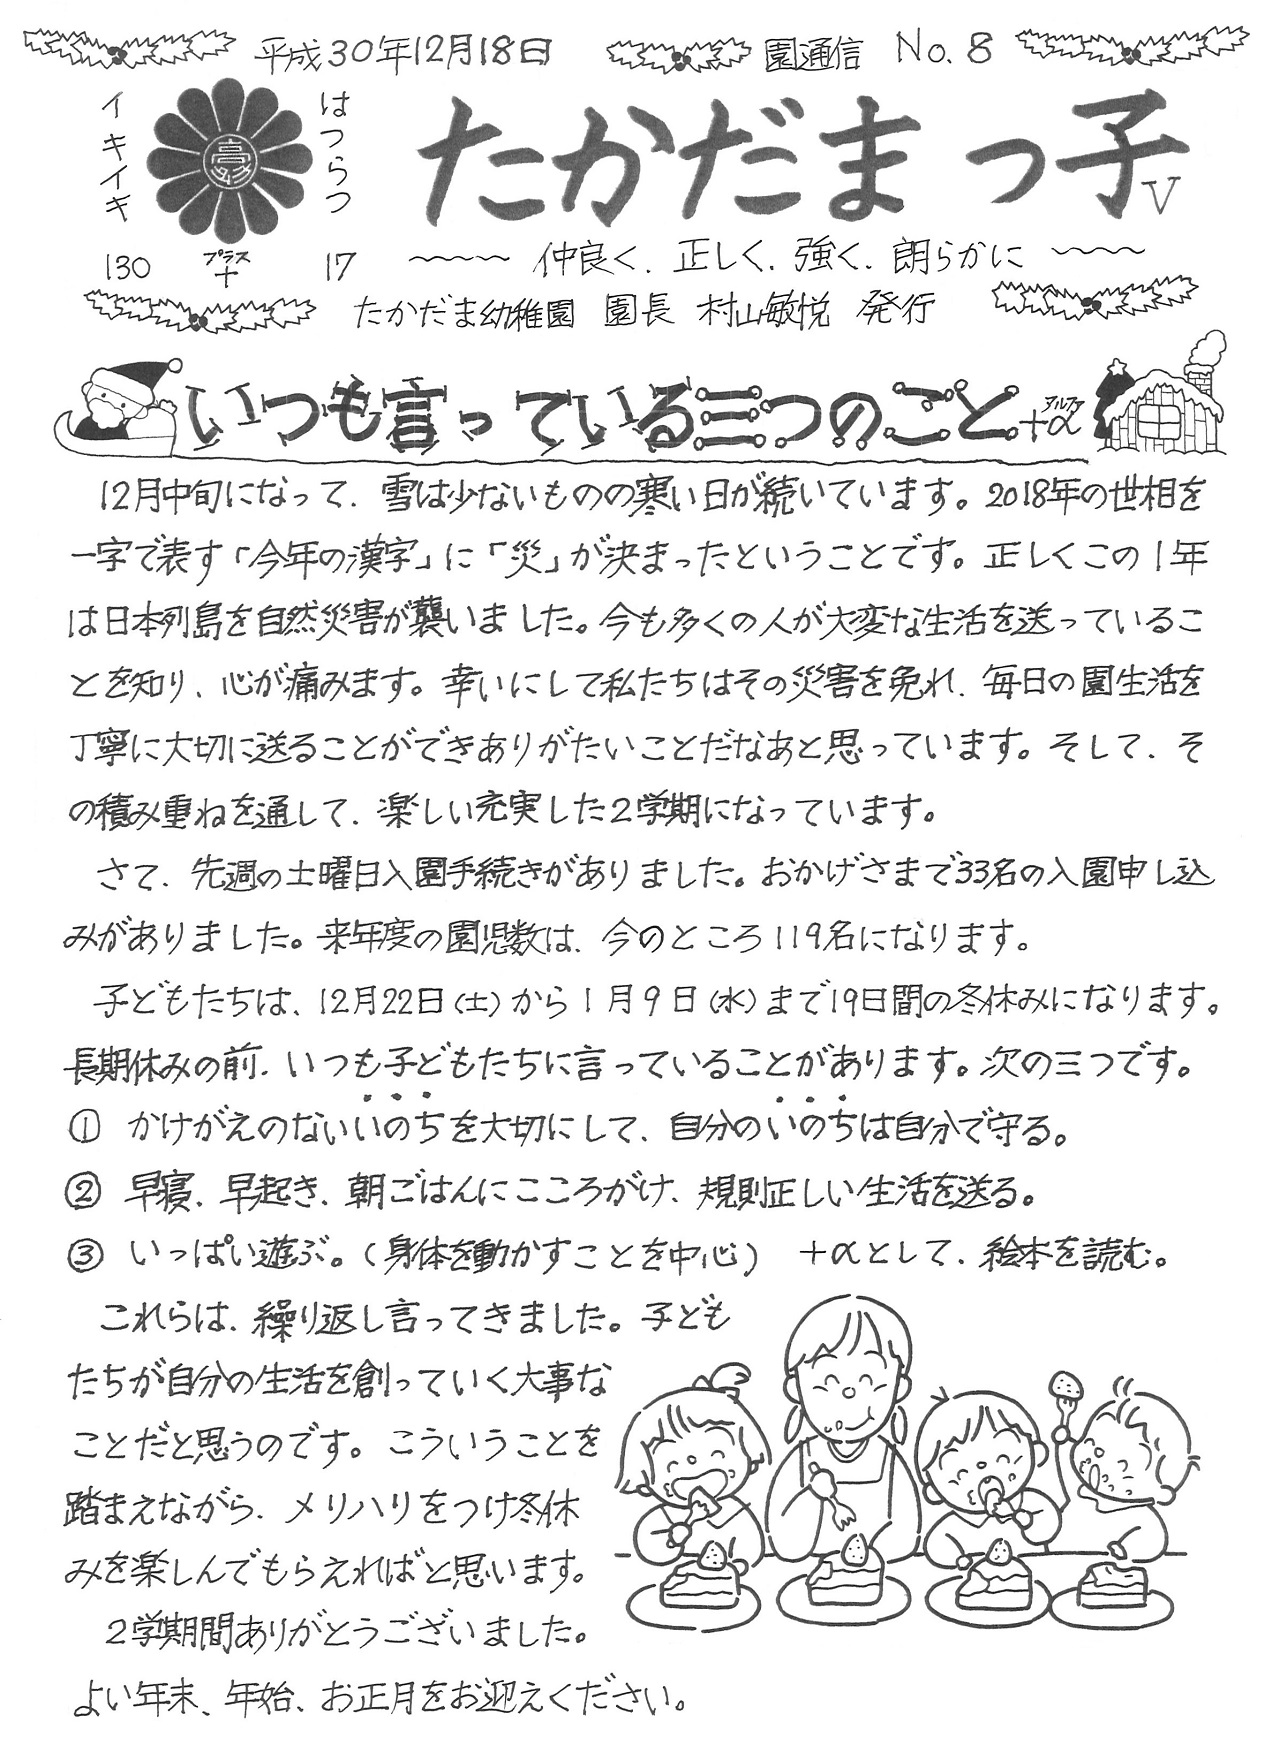 平成30年12月18日 園通信 No.8
イキイキ はつらつ
たかだまっ子 V
130 プラス + 17 〜〜〜 仲良く、正しく、強く、朗らかに 〜〜〜
たかだま幼稚園 園長 村山敏悦 発行
いつも言っている三つのこと+α アルファ
12月中旬になって、雪は少ないものの寒い日が続いています。2018年の世相を
一字で表す「今年の漢字」に「災」が決まったということです。正しくこの1年
は日本列島を自然災害が襲いました。今も多くの人が大変な生活を送っているこ
とを知り、心が痛みます。幸いにして私たちはその災害を免れ、毎日の園生活を
丁寧に大切に送ることができありがたいことだなあと思っています。そして、そ
の積み重ねを通して、楽しい充実した2学期になっています。
さて、先週の土曜日入園手続きがありました。おかげさまで33名の入園申し込
みがありました。来年度の園児数は、今のところ119名になります。
子どもたちは、12月22日(土)から1月9日(水)まで19日間の冬休みになります。
長期休みの前、いつも子どもたちに言っていることがあります。次の三つです。
① かけがえのないいのちを大切にして、自分のいのちは自分で守る。
② 早寝、早起き、朝ごはんにこころがけ、規則正しい生活を送る。
③ いっぱい遊ぶ。(身体を動かすことを中心) +αとして、絵本を読む。
これらは、繰り返し言ってきました。子ども
たちが自分の生活を創っていく大事な
ことだと思うのです。こういうことを
踏まえながら、メリハリをつけ冬休
みを楽しんでもらえればと思います。
2学期間ありがとうございました。
よい年末、年始、お正月をお迎えください。